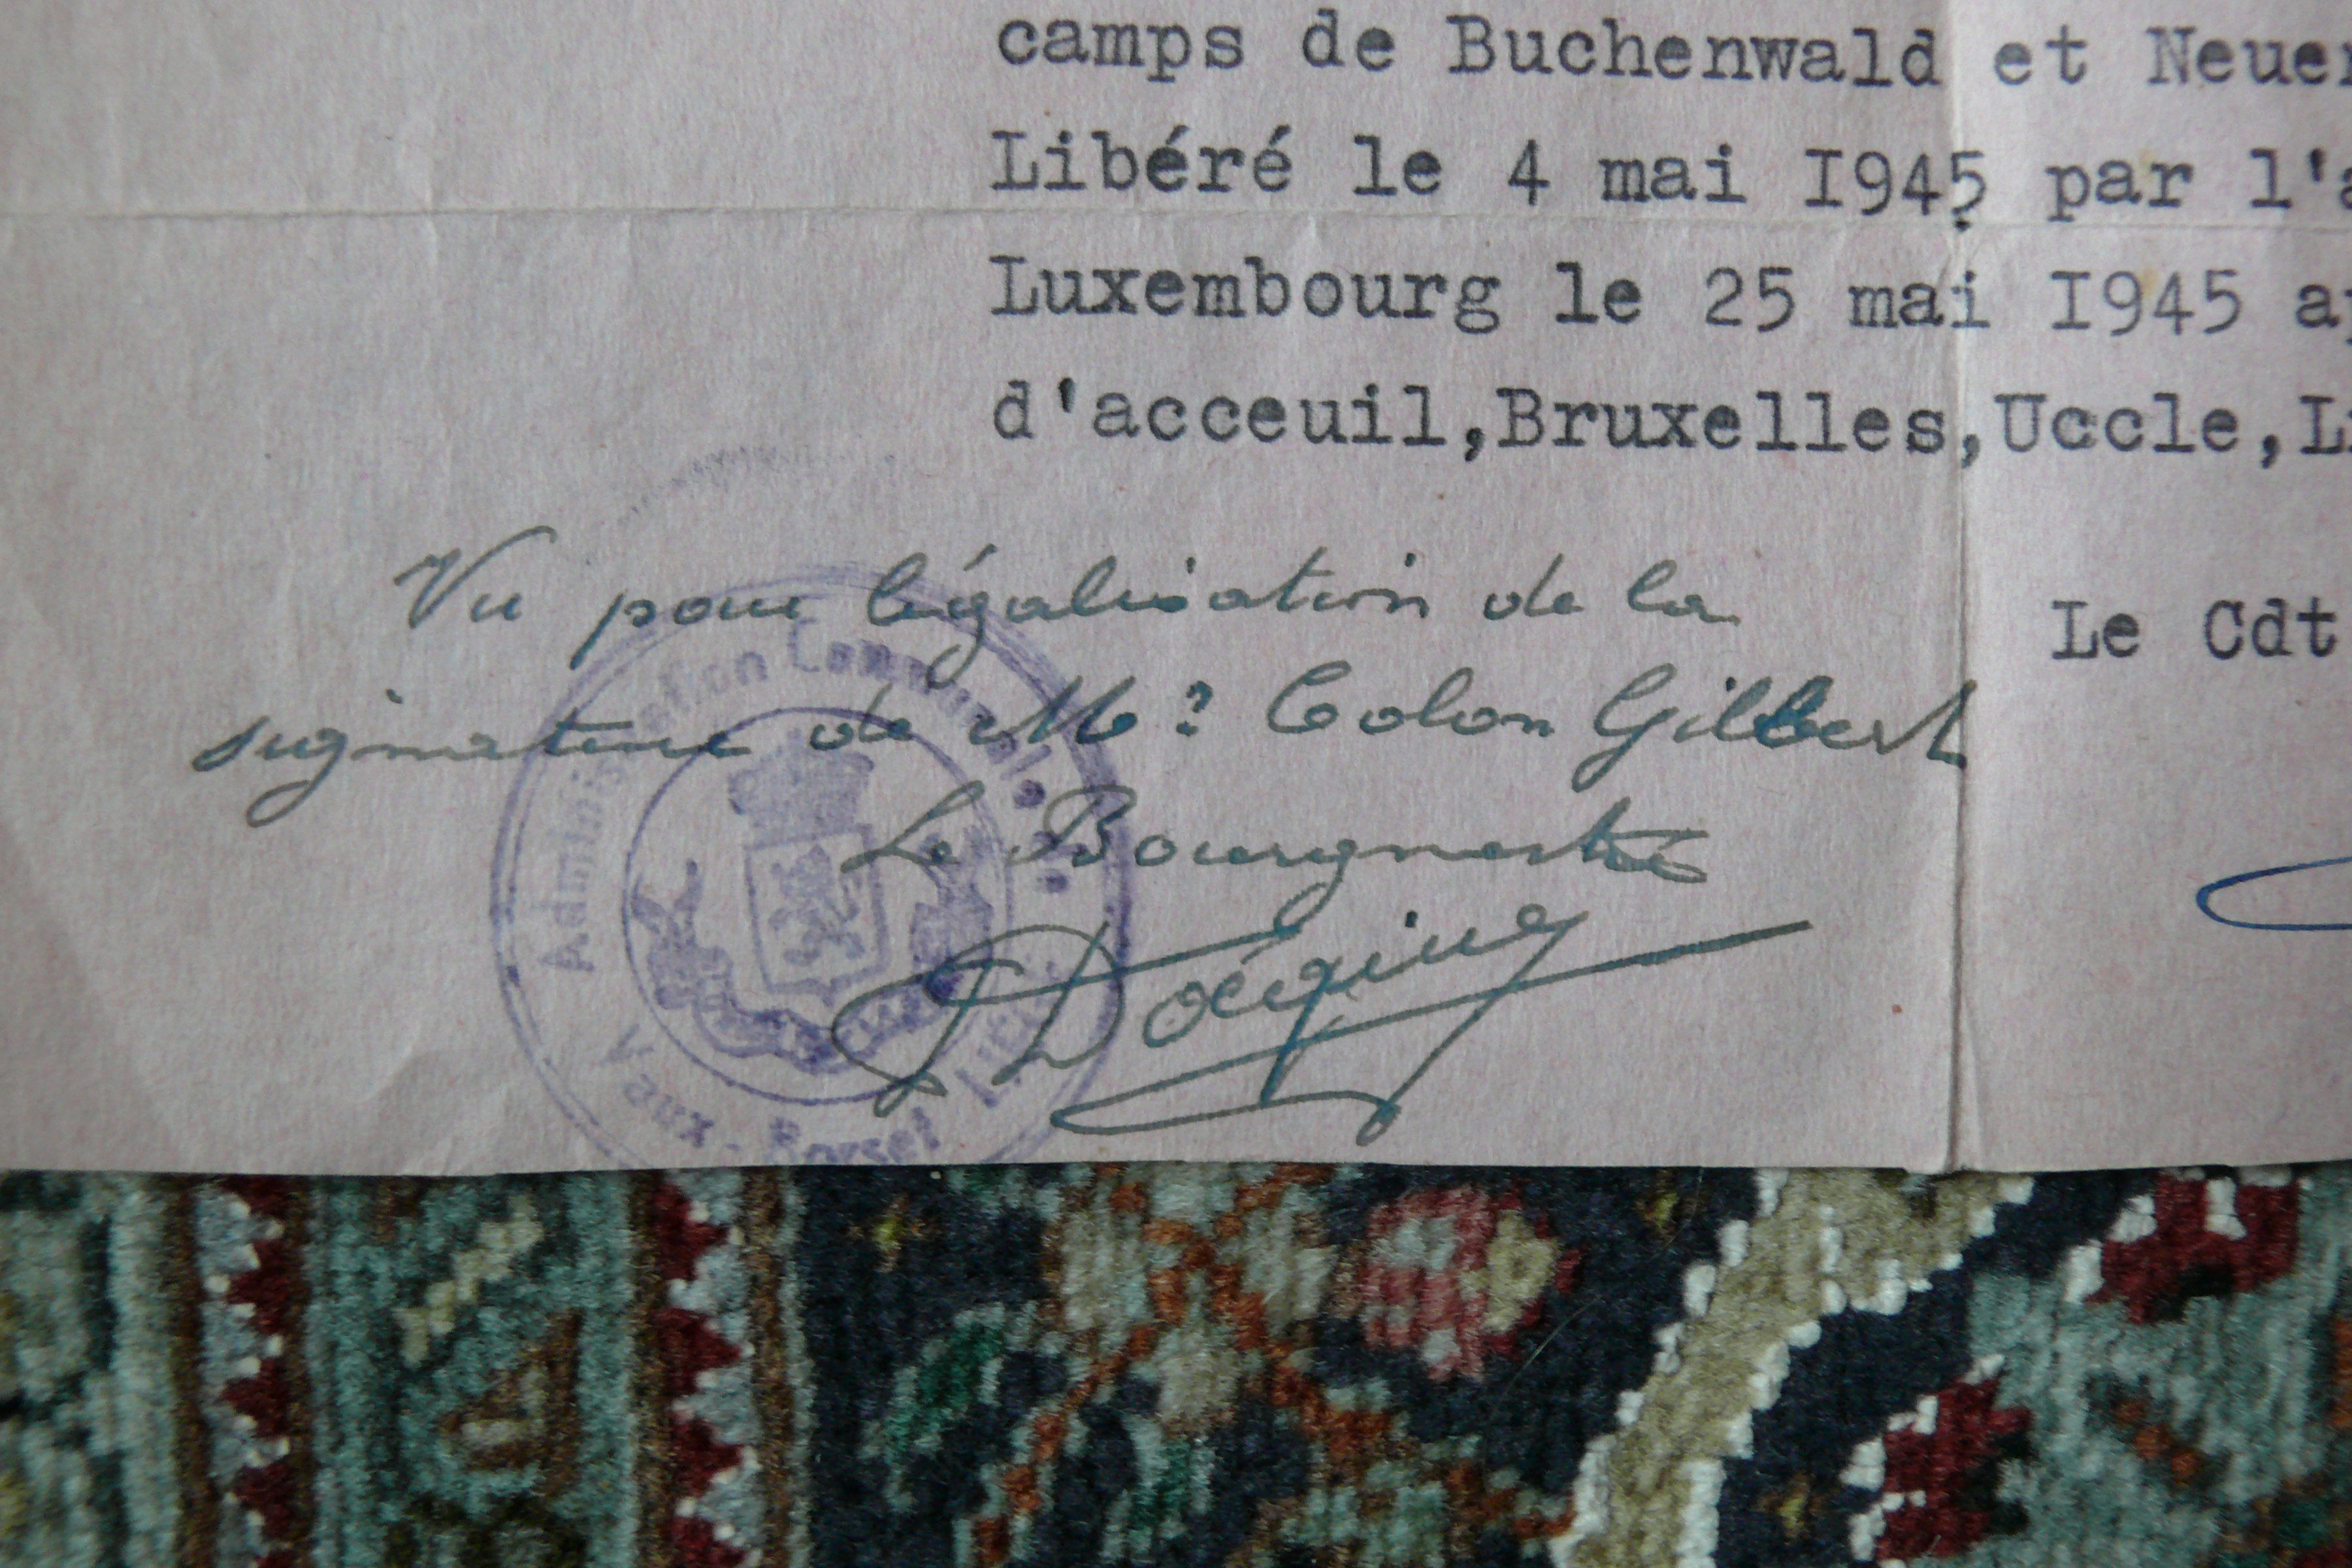 camps de Buchenwald et Neuen
Libéré le 4 mai I945 par l'a
Luxembourg le 25 mai I945 ap
d'acceuil,Bruxelles,Uccle,Li
Vu pour légalisation de la
signature de Mr Colon Gilbert
Le Cdt
Le Bourgmestre
Administration Communale
Vaux-Borset Liège